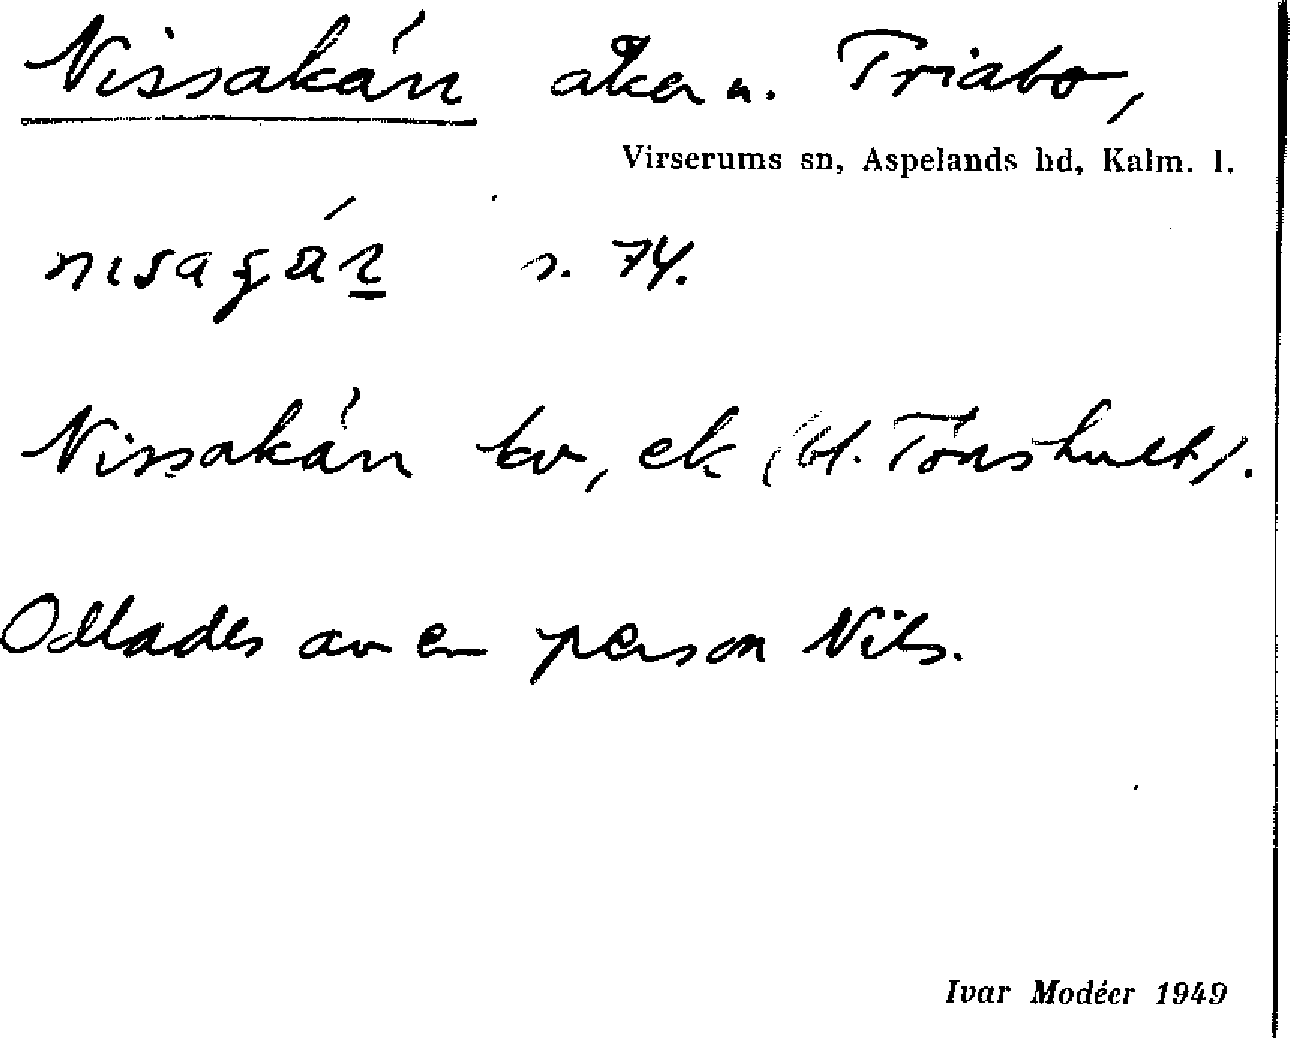 Nissakán åker u. Triabo,
Virserums sn, Aspelands hd, Kalm. l.
s. 74.
Nissakán kv, ek (bl. Tönshult).
Odlades av en person Nils.
Ivar Modéer 1949